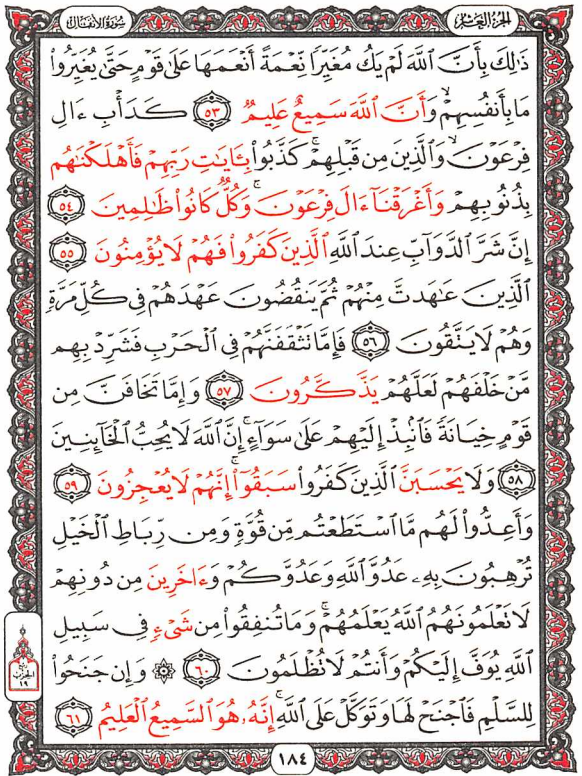 سورة الأنفال
الجزء العاشر
ذَٰلِكَ بِأَنَّ ٱللَّهَ لَمْ يَكُ مُغَيِّرًا نِّعْمَةً أَنْعَمَهَا عَلَىٰ قَوْمٍ حَتَّىٰ يُغَيِّرُوا۟
مَا بِأَنفُسِهِمْ ۙ وَأَنَّ ٱللَّهَ سَمِيعٌ عَلِيمٌ ٥٣ كَدَأْبِ ءَالِ
فِرْعَوْنَ ۙ وَٱلَّذِينَ مِن قَبْلِهِمْ ۚ كَذَّبُوا۟ بِـَٔايَـٰتِ رَبِّهِمْ فَأَهْلَكْنَـٰهُم
بِذُنُوبِهِمْ وَأَغْرَقْنَآ ءَالَ فِرْعَوْنَ ۚ وَكُلٌّ كَانُوا۟ ظَـٰلِمِينَ ٥٤
إِنَّ شَرَّ ٱلدَّوَآبِّ عِندَ ٱللَّهِ ٱلَّذِينَ كَفَرُوا۟ فَهُمْ لَا يُؤْمِنُونَ ٥٥
ٱلَّذِينَ عَـٰهَدتَّ مِنْهُمْ ثُمَّ يَنقُضُونَ عَهْدَهُمْ فِى كُلِّ مَرَّةٍ
وَهُمْ لَا يَتَّقُونَ ٥٦ فَإِمَّا تَثْقَفَنَّهُمْ فِى ٱلْحَرْبِ فَشَرِّدْ بِهِم
مَّنْ خَلْفَهُمْ لَعَلَّهُمْ يَذَّكَّرُونَ ٥٧ وَإِمَّا تَخَافَنَّ مِن
قَوْمٍ خِيَانَةً فَٱنۢبِذْ إِلَيْهِمْ عَلَىٰ سَوَآءٍ ۚ إِنَّ ٱللَّهَ لَا يُحِبُّ ٱلْخَآئِنِينَ
٥٨ وَلَا يَحْسَبَنَّ ٱلَّذِينَ كَفَرُوا۟ سَبَقُوٓا۟ ۚ إِنَّهُمْ لَا يُعْجِزُونَ ٥٩
وَأَعِدُّوا۟ لَهُم مَّا ٱسْتَطَعْتُم مِّن قُوَّةٍ وَمِن رِّبَاطِ ٱلْخَيْلِ
تُرْهِبُونَ بِهِۦ عَدُوَّ ٱللَّهِ وَعَدُوَّكُمْ وَءَاخَرِينَ مِن دُونِهِمْ
لَا تَعْلَمُونَهُمُ ٱللَّهُ يَعْلَمُهُمْ ۚ وَمَا تُنفِقُوا۟ مِن شَىْءٍ فِى سَبِيلِ
ٱللَّهِ يُوَفَّ إِلَيْكُمْ وَأَنتُمْ لَا تُظْلَمُونَ ٦٠ ۞ وَإِن جَنَحُوا۟
لِلسَّلْمِ فَٱجْنَحْ لَهَا وَتَوَكَّلْ عَلَى ٱللَّهِ ۚ إِنَّهُۥ هُوَ ٱلسَّمِيعُ ٱلْعَلِيمُ ٦١
ربع
الحزب
١٩
١٨٤